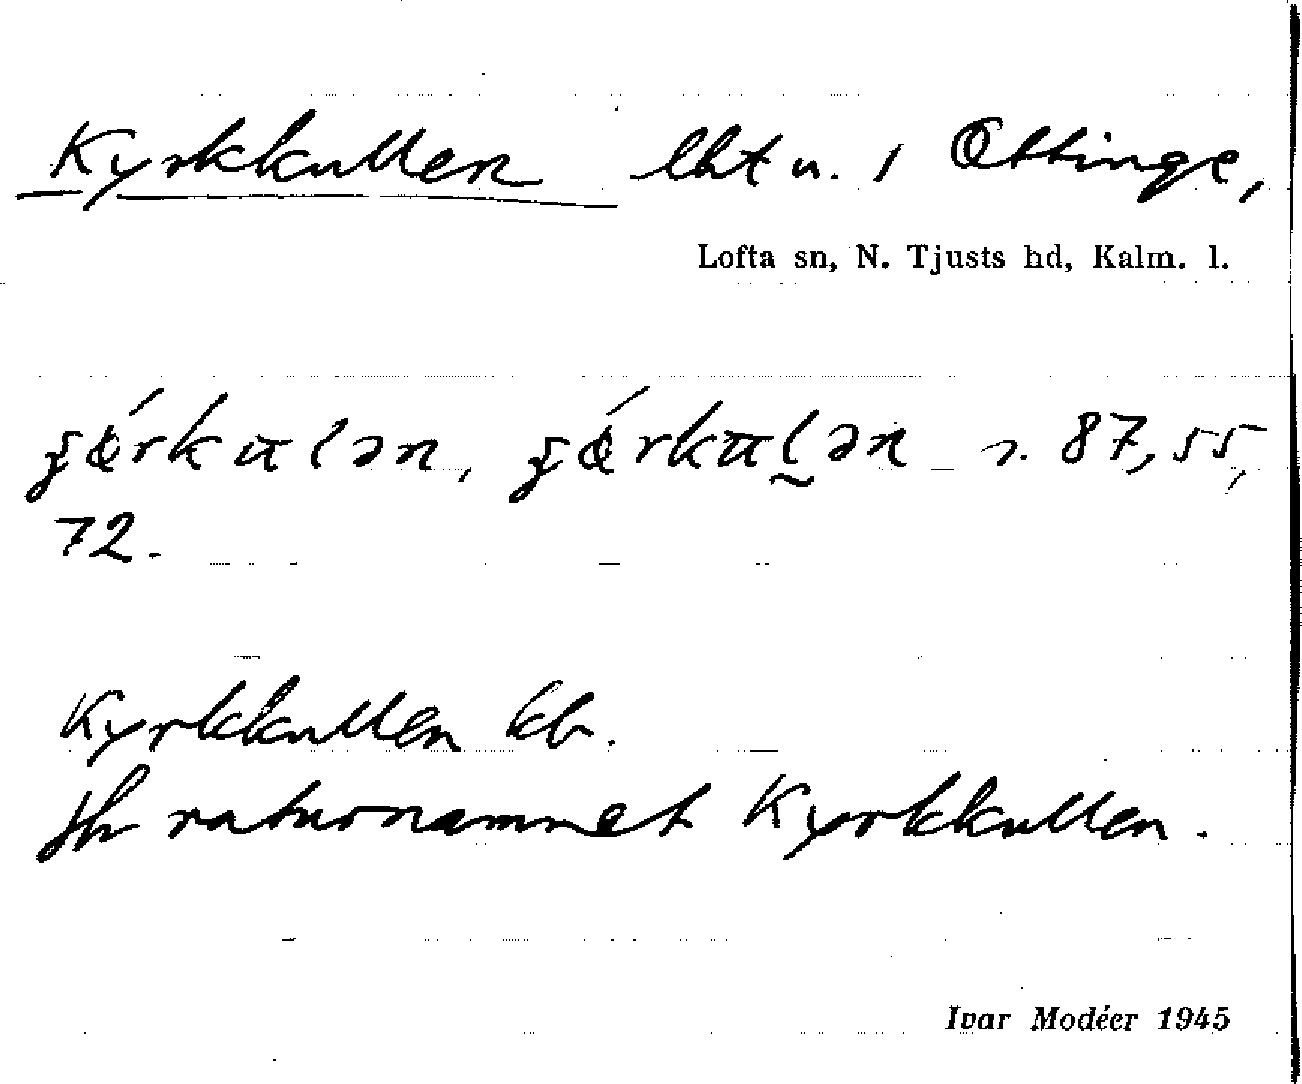 Kyrkkullen lht u. / Ottinge,
Lofta sn, N. Tjusts hd, Kalm. l.
87, 55,
72.
Kyrkkullen kb.
Jfr naturnamnet Kyrkkullen.
Ivar Modéer 1945